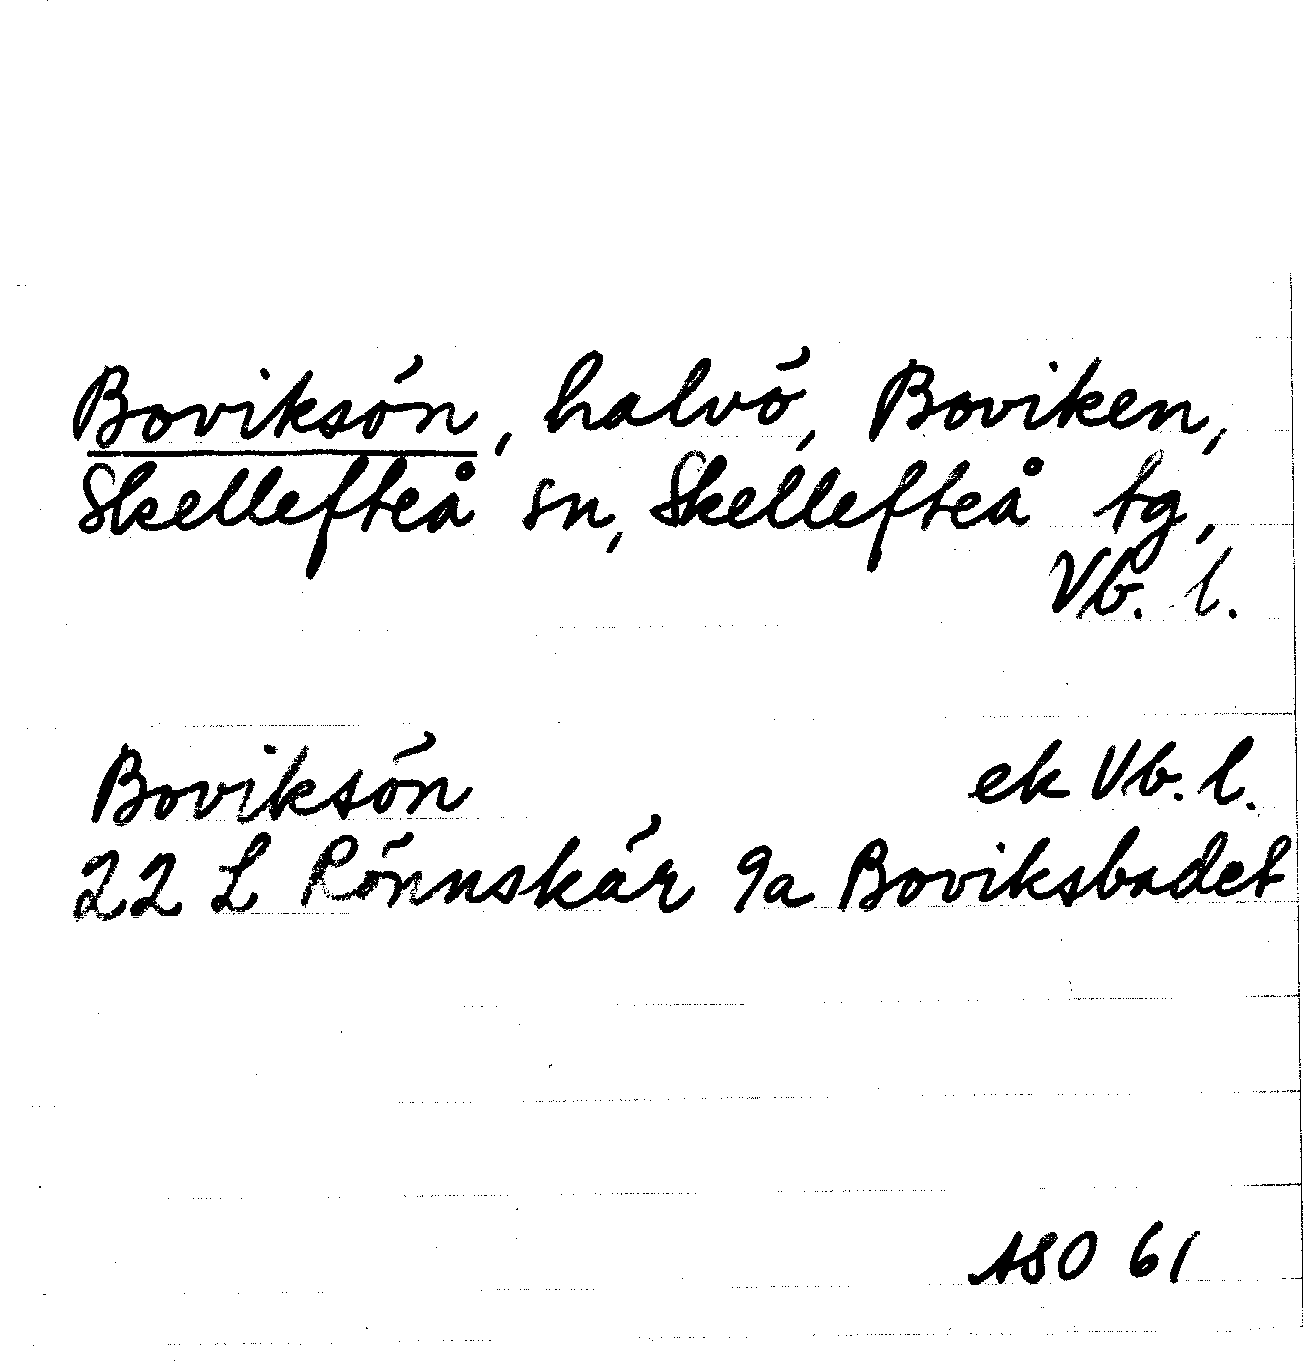 Boviksön, halvö, Boviken,
Skellefteå sn, Skellefteå tg,
Vb. l.
Boviksön ek Vb. l.
22 L Rönnskär 9a Boviksbadet
ASO 61